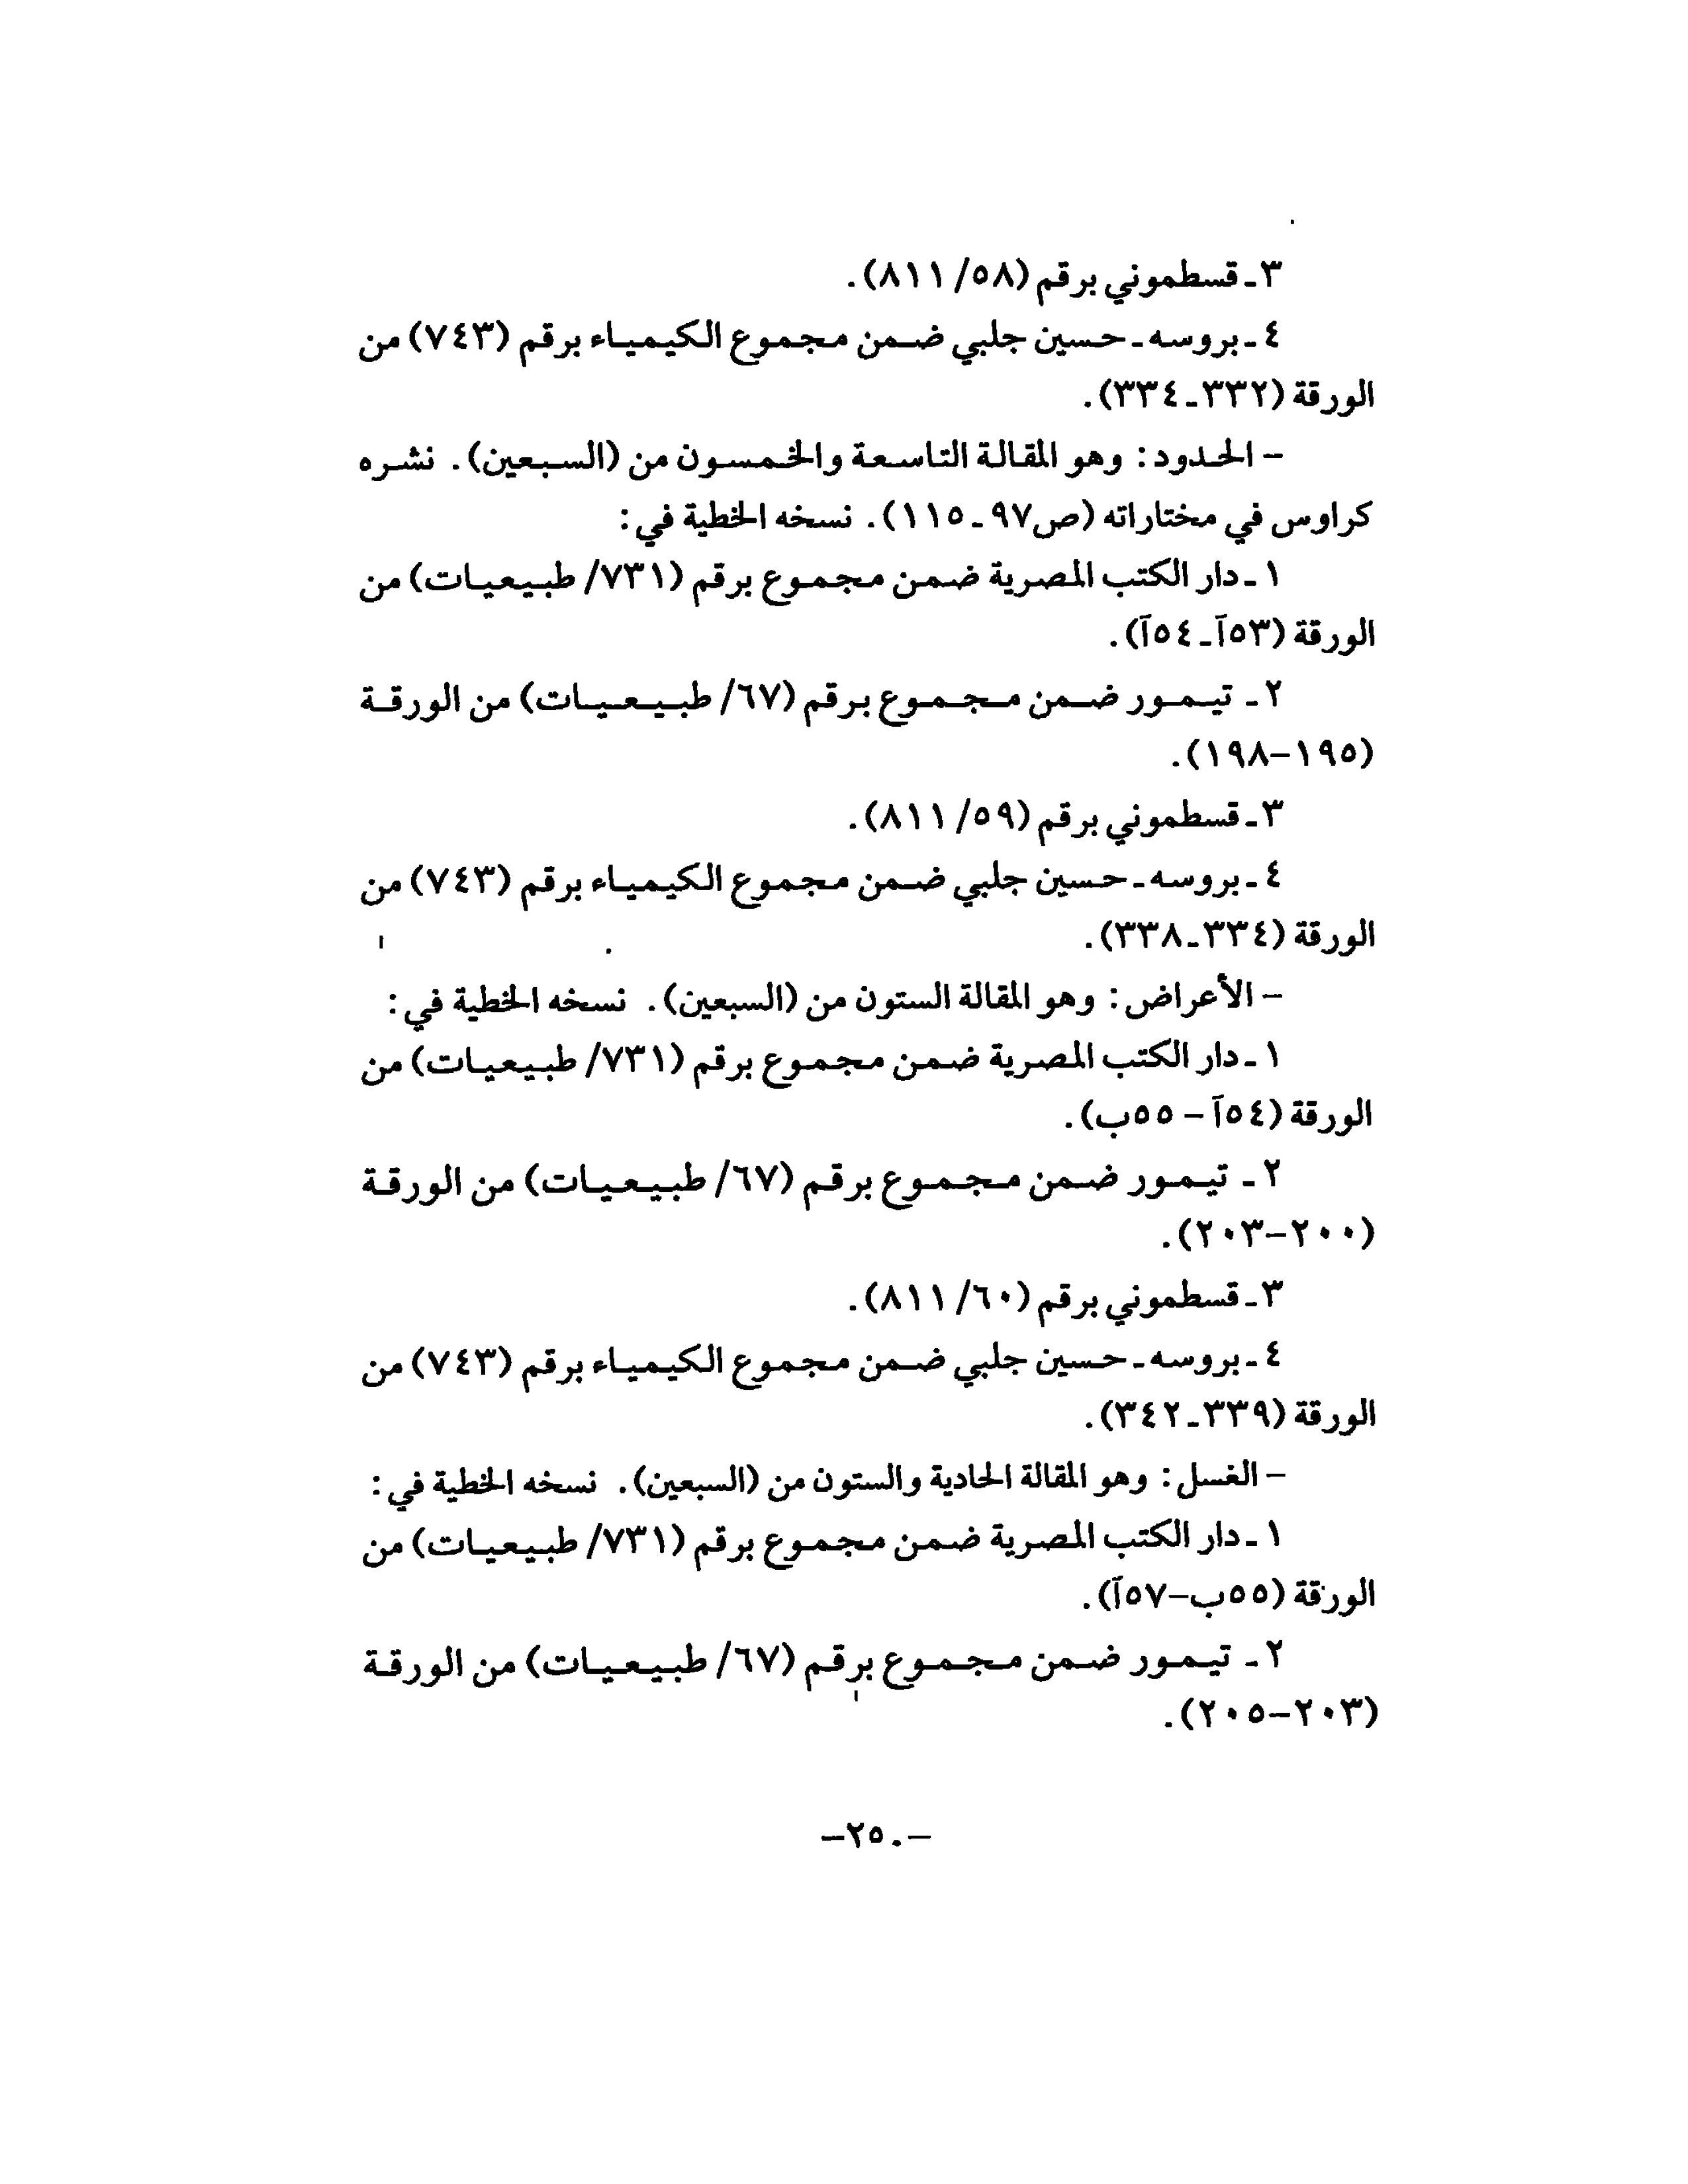 ٣ـ قسطموني برقم (٥٨/ ٨١١).
٤ ـ بروسه ـ حسين جلبي ضمن مجموع الكيمياء برقم (٧٤٣) من
الورقة (٣٣٢ـ ٣٣٤).
– الحدود: وهو المقالة التاسعة والخمسون من (السبعين). نشره
كراوس في مختاراته (ص٩٧ـ ١١٥). نسخه الخطية في:
١ ـ دار الكتب المصرية ضمن مجموع برقم (٧٣١/ طبيعيات) من
الورقة (٥٣آـ ٥٤آ).
٢ ـ تيمور ضمن مجموع برقم (٦٧/ طبيعيات) من الورقة
(١٩٥–١٩٨).
٣ـ قسطموني برقم (٥٩/ ٨١١).
٤ ـ بروسه ـ حسين جلبي ضمن مجموع الكيمياء برقم (٧٤٣) من
الورقة (٣٣٤ـ٣٣٨).
– الأعراض: وهو المقالة الستون من (السبعين). نسخه الخطية في:
١ ـ دار الكتب المصرية ضمن مجموع برقم (٧٣١/ طبيعيات) من
الورقة (٥٤آ – ٥٥ب).
٢ ـ تيمور ضمن مجموع برقم (٦٧/ طبيعيات) من الورقة
(٢٠٠–٢٠٣).
٣ـ قسطموني برقم (٦٠/ ٨١١).
٤ ـ بروسه ـ حسين جلبي ضمن مجموع الكيمياء برقم (٧٤٣) من
الورقة (٣٣٩ـ ٣٤٢).
– الغسل: وهو المقالة الحادية والستون من (السبعين). نسخه الخطية في:
١ ـ دار الكتب المصرية ضمن مجموع برقم (٧٣١/ طبيعيات) من
الورقة (٥٥ب–٥٧آ).
٢ ـ تيمور ضمن مجموع برقم (٦٧/ طبيعيات) من الورقة
(٢٠٣–٢٠٥).
–٢٥٠–